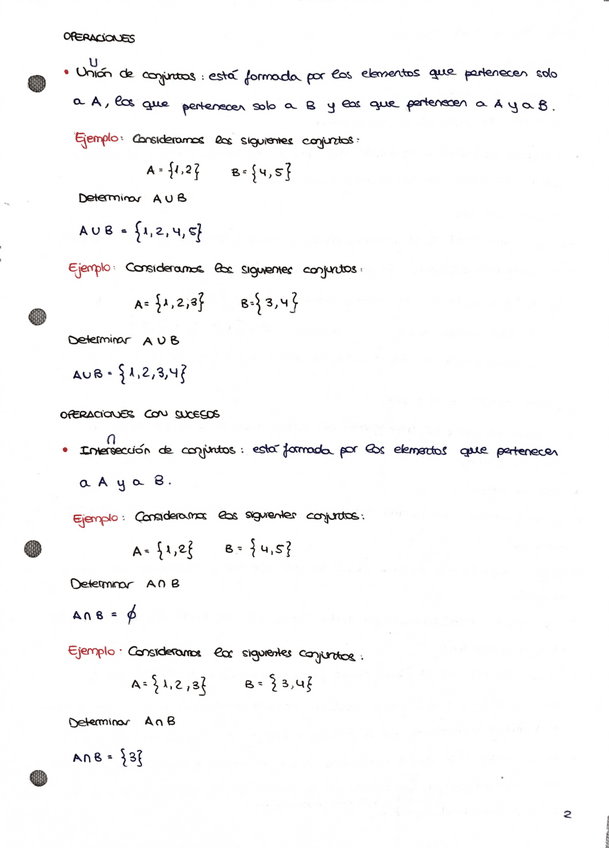 OPERACIONES
U
• Unión de conjuntos: está formada por los elementos que pertenecen solo
a A, los que pertenecen solo a B y los que pertenecen a A y a B.
Ejemplo: Consideramos los siguientes conjuntos:
A = {1,2} B = {4,5}
Determinar A ∪ B
A ∪ B = {1,2,4,5}
Ejemplo: Consideramos los siguientes conjuntos:
A = {1,2,3} B = {3,4}
Determinar A ∪ B
A ∪ B = {1,2,3,4}
OPERACIONES CON SUCESOS
∩
• Intersección de conjuntos: está formada por los elementos que pertenecen
a A y a B.
Ejemplo: Consideramos los siguientes conjuntos:
A = {1,2} B = {4,5}
Determinar A ∩ B
A ∩ B = ∅
Ejemplo: Consideramos los siguientes conjuntos:
A = {1,2,3} B = {3,4}
Determinar A ∩ B
A ∩ B = {3}
2